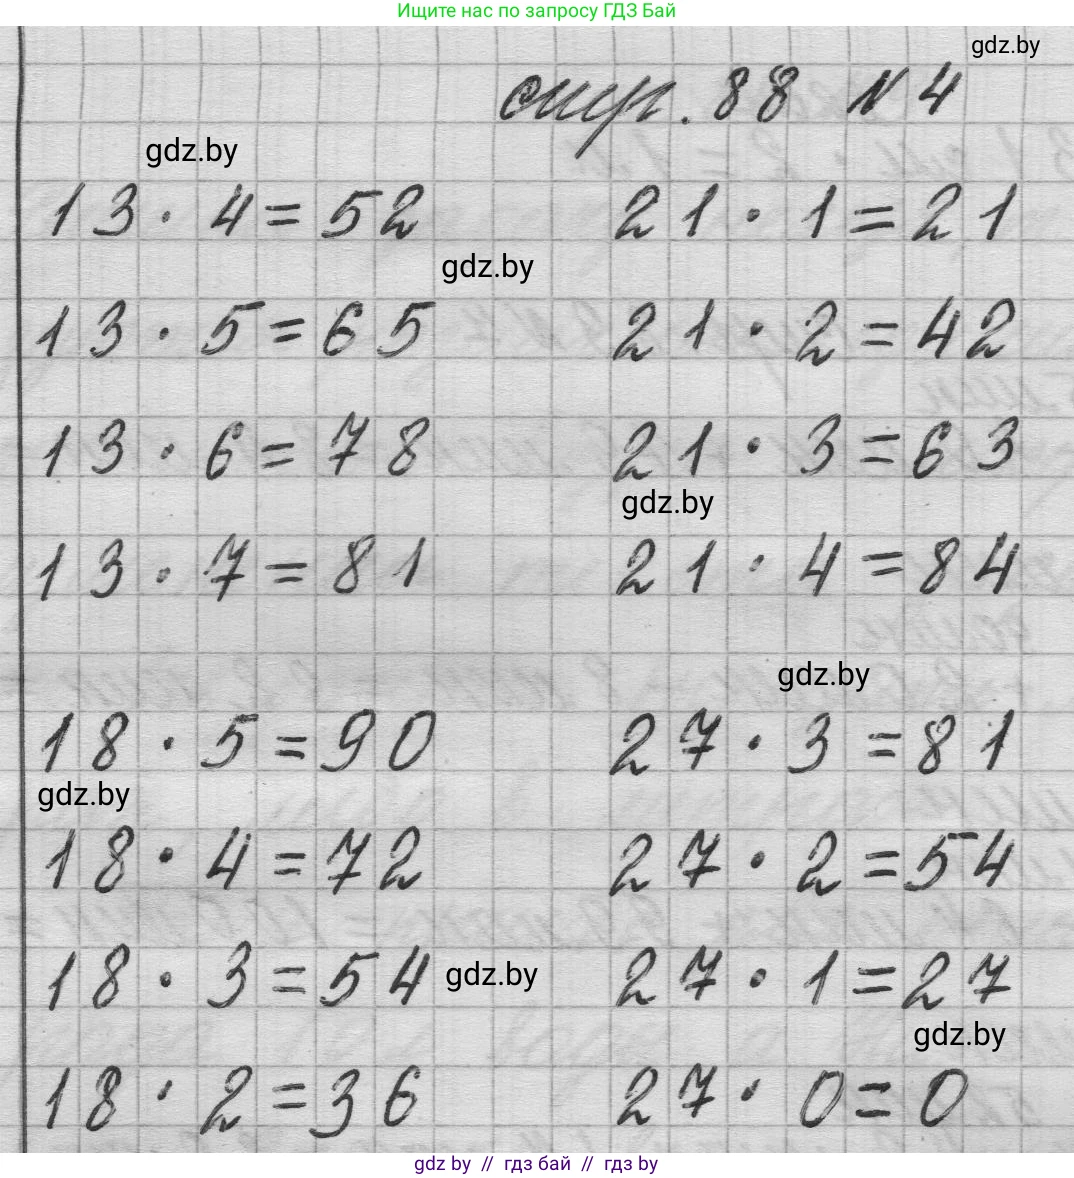 Ищите нас по запросу ГДЗ Бай
gdz.by
стр. 88 № 4
gdz.by
13 · 4 = 52 21 · 1 = 21
gdz.by
13 · 5 = 65 21 · 2 = 42
13 · 6 = 78 21 · 3 = 63
gdz.by
13 · 7 = 81 21 · 4 = 84
gdz.by
18 · 5 = 90 27 · 3 = 81
gdz.by
18 · 4 = 72 27 · 2 = 54
18 · 3 = 54 gdz.by 27 · 1 = 27
gdz.by
18 · 2 = 36 27 · 0 = 0
gdz by // гдз бай // гдз by